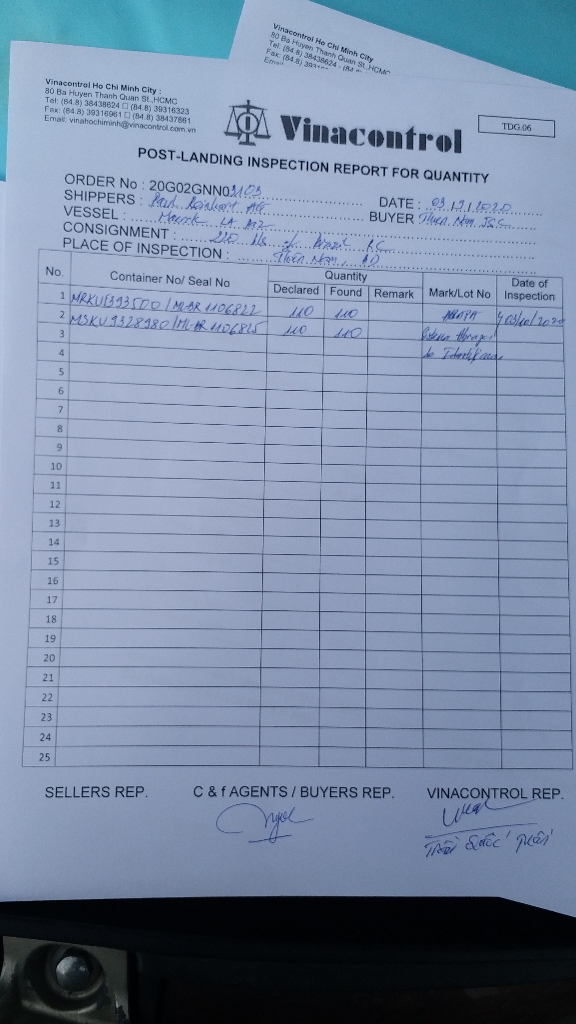 Vinacontrol Ho Chi Minh City
80 Ba Huyen Thanh Quan St.,HCMC
Tel: (84.8) 38438624
Vinacontrol Ho Chi Minh City :
80 Ba Huyen Thanh Quan St.,HCMC
Tel: (84.8) 38438624 □ (84.8) 39316323
Fax: (84.8) 39316961 □ (84.8) 38437861
Email: vinahochiminh@vinacontrol.com.vn
Vinacontrol
TDG.06
POST-LANDING INSPECTION REPORT FOR QUANTITY
ORDER No : 20G02GNN03103
SHIPPERS : Paul Reinhart AG DATE :
VESSEL : Maersk BUYER Thien Nam JSC
CONSIGNMENT : 220 Bls of Brazil RC
PLACE OF INSPECTION : Thien Nam,
No. Container No/ Seal No Quantity Mark/Lot No Date of Inspection
Declared Found Remark
1 MRKU 1393500 / ML-BR 1106822 110 110 03/10/2020
2 MSKU 9328980 / ML-BR 1106825 110 110
3
4
5
6
7
8
9
10
11
12
13
14
15
16
17
18
19
20
21
22
23
24
25
SELLERS REP. C & f AGENTS / BUYERS REP. VINACONTROL REP.
Trần Quốc Tuấn